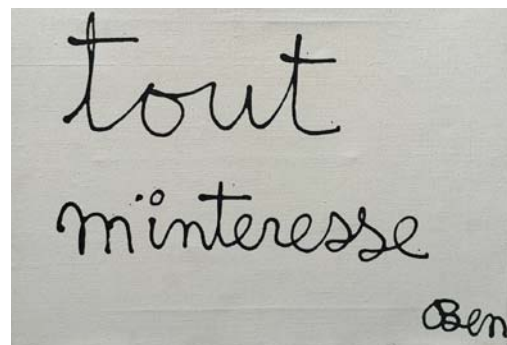 tout
m'interesse
Ben